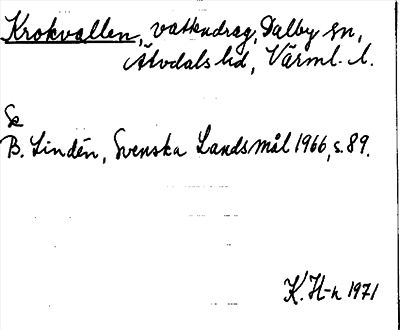 Krokvallen, vattendrag, Dalby sn,
Älvdals hd, Värml. l.
Se
B. Lindén, Svenska Landsmål 1966, s. 89.
K. H-n 1971